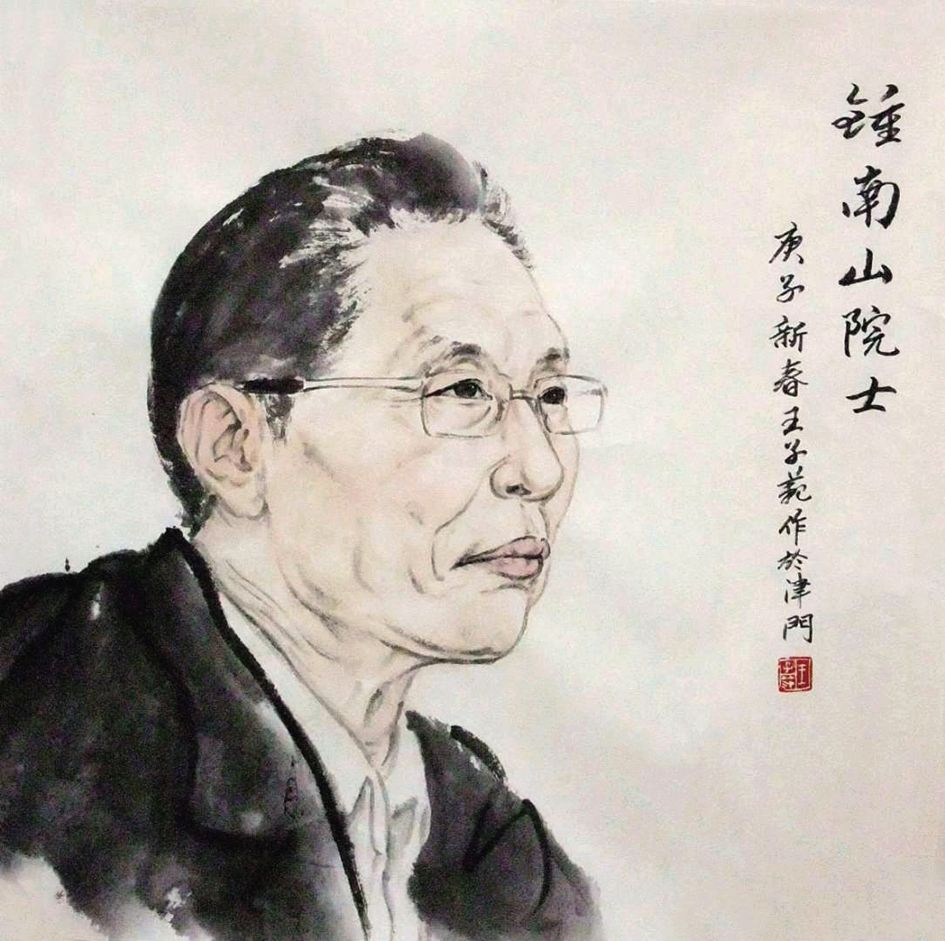 鍾南山院士
庚子新春王子範作於津門